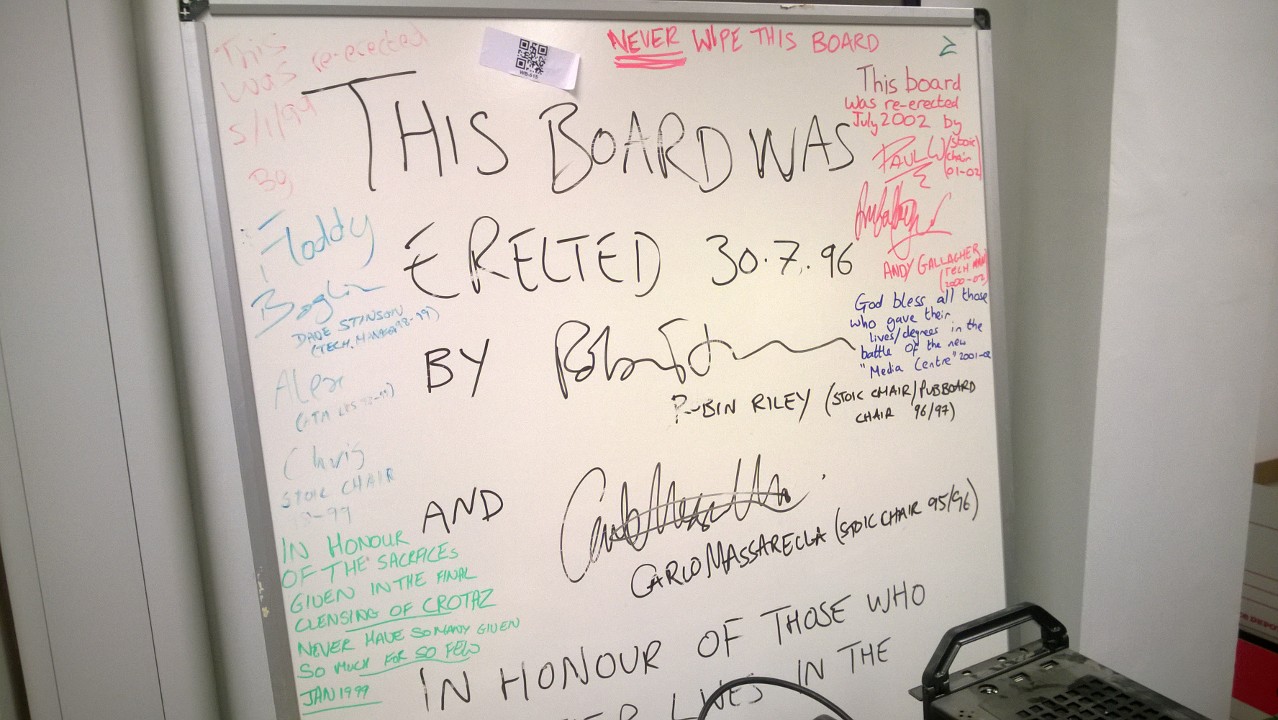 NEVER WIPE THIS BOARD
This
was re-erected
5/1/99
Bog
THIS BOARD WAS
ERECTED 30.7.96
BY
ROBIN RILEY (STOIC CHAIR/PUBBOARD
CHAIR 96/97)
AND
CARLO MASSARELLA (STOIC CHAIR 95/96)
IN HONOUR OF THOSE WHO
LIVES IN THE
This board
was re-erected
July 2002 by
PAUL W (stoic
chair
01-02)
ANDY GALLAGHER
(TECH
2000-02)
God bless all those
who gave their
lives/degrees in the
battle of the new
"Media Centre" 2001-02
DAVE STINSON
(TECH. MANAGER 98-99)
Alex
Chris
STOIC CHAIR
-99
IN HONOUR
OF THE SACRFICES
GIVEN IN THE FINAL
CLENSING OF CROTAZ
NEVER HAVE SO MANY GIVEN
SO MUCH FOR SO FEW
JAN 1999